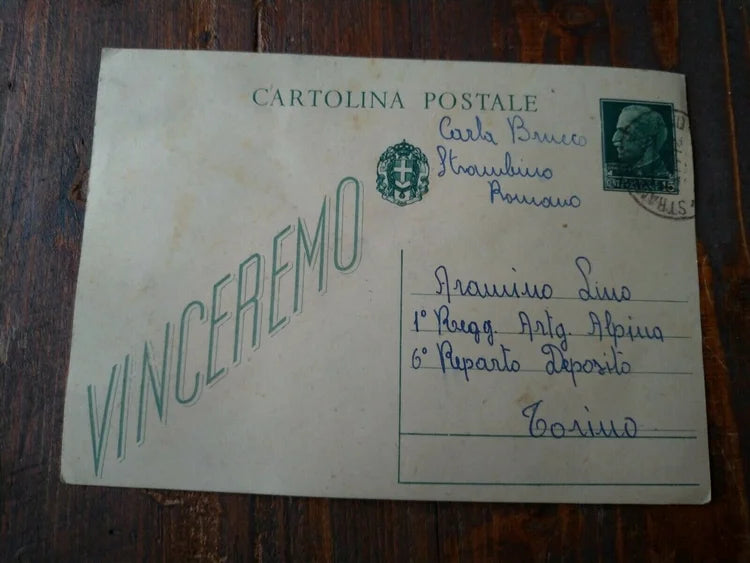 CARTOLINA POSTALE
Carla Brucco
Strambino
Romano
VINCEREMO
Aramino Lino
1° Regg. Artg. Alpina
6° Reparto Deposito
Torino